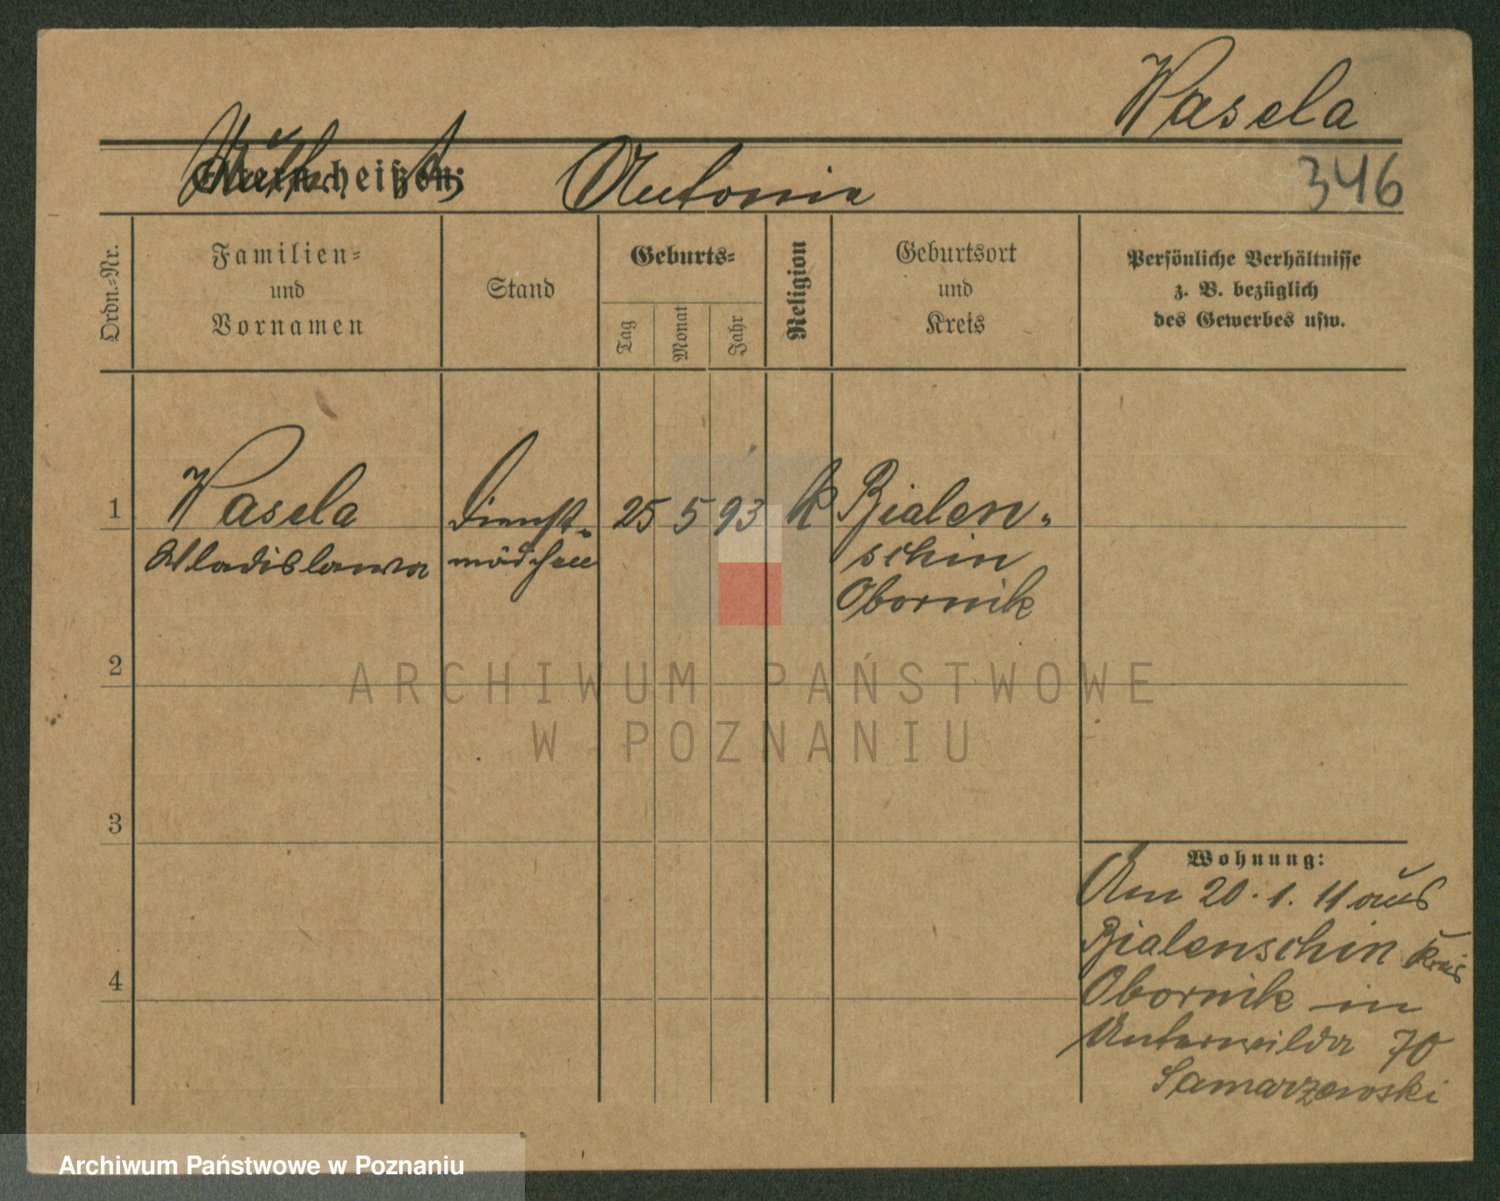 Wasela
Antonie
346
Ordn.-Nr.
Familien-
und
Vornamen
Stand
Geburts-
Tag
Monat
Jahr
Religion
Geburtsort
und
Kreis
Persönliche Verhältnisse
z. B. bezüglich
des Gewerbes usw.
1
Wasela
Wladislawa
Dienst-
mädchen
25 5 93
k
Bialen-
schin
Obornik
2
3
4
Wohnung:
Am 20.1.11 aus
Bialenschin Kreis
Obornik in
Unterwilda 70
Samarzewski
ARCHIWUM PAŃSTWOWE
W POZNANIU
Archiwum Państwowe w Poznaniu